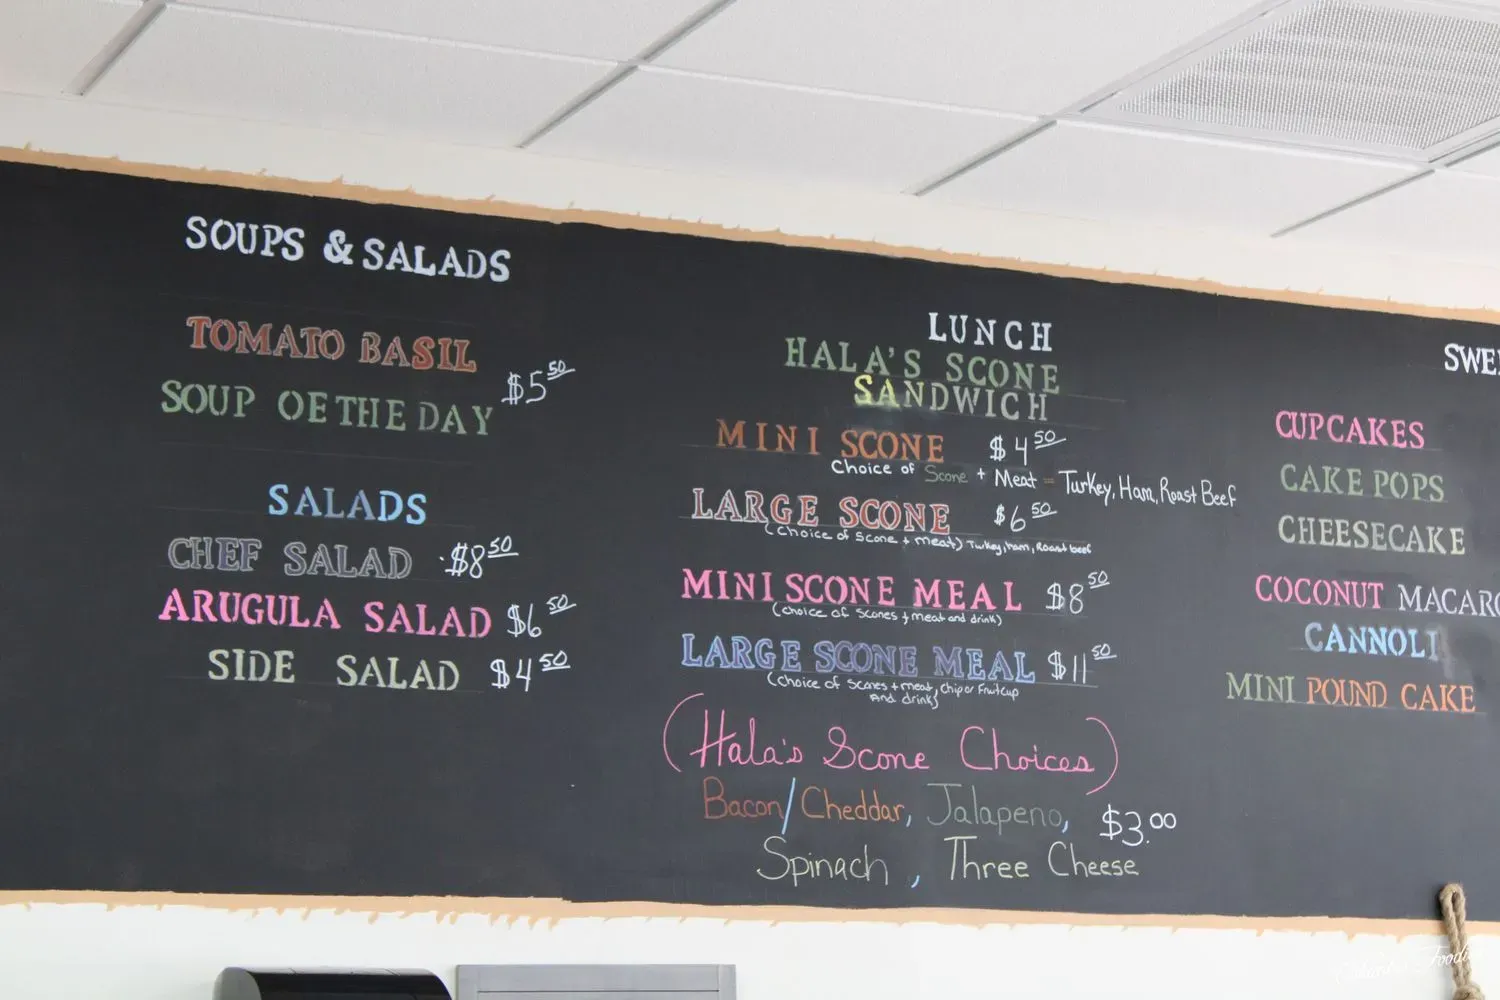 SOUPS & SALADS
TOMATO BASIL
SOUP OF THE DAY $5 50
SALADS
CHEF SALAD $8 50
ARUGULA SALAD $6 50
SIDE SALAD $4 50
LUNCH
HALA'S SCONE
SANDWICH
MINI SCONE $4 50
Choice of Scone + Meat = Turkey, Ham, Roast Beef
LARGE SCONE $6 50
(choice of scone + meat) Turkey, ham, Roast beef
MINI SCONE MEAL $8 50
(choice of scones + meat and drink)
LARGE SCONE MEAL $11 50
(choice of scones + meat, chip or Fruitcup
And drink)
(Hala's Scone Choices)
Bacon/Cheddar, Jalapeno, $3.00
Spinach, Three Cheese
CUPCAKES
CAKE POPS
CHEESECAKE
COCONUT
CANNOLI
MINI POUND CAKE